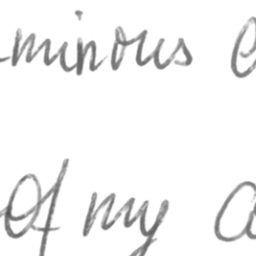 minous
of my